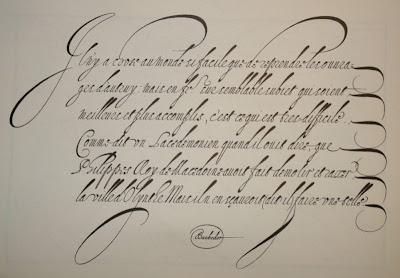 Il n'y a chose au monde si facile que de reprendre les ouvra-
ges d'autruy mais en fe Une semblable subiet qui soient
meilleurs et plus accomplis, c'est ce qui est tres difficile.
Comme dit un Lacedemonien quand il ouit dire que
Philippes Roy de Macedoine avoit fait demolir et razer
la ville d'Olynthe Mais il n'en sçauroit dit il faire une telle.
Barbedor